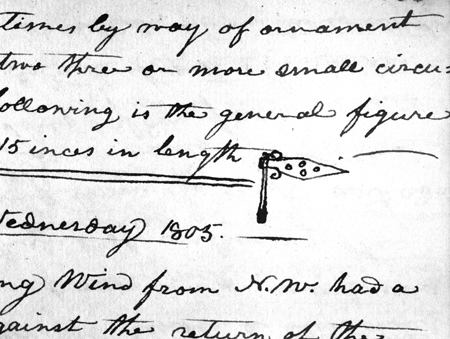 times by way of ornament
two three or more small circu=
following is the general figure
15 inces in length
Wednesday 1805.
ng Wind from N.W. had a
against the return of the